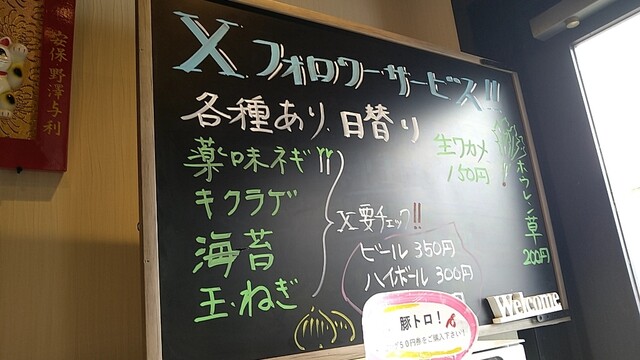 安保野澤与利
X フォロワーサービス!!
各種あり 日替り
薬味ネギ
キクラゲ
海苔
玉ねぎ
X要チェック!!
ビール 350円
ハイボール 300円
円
生ワカメ
150円
ホウレン草
200円
Welcome
豚トロ!
50円券をご購入下さい!